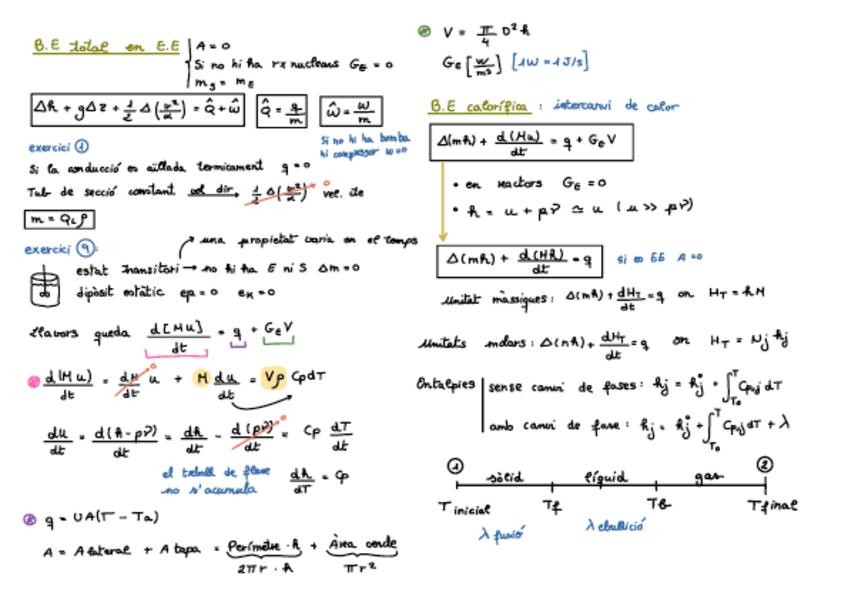 B.E total en E.E
A = 0
Si no hi ha rx nuclears G_E = 0
m_S = m_E
Δh + gΔz + 1/2 Δ(v²/α) = Q̂ + ŵ
Q̂ = q/m
ŵ = w/m
Si no hi ha bomba
ni compressor w=0
exercici ①
Si la conducció es aïllada termicament q = 0
Tub de secció constant vol dir → 1/2 Δ(v²/α) → 0 vel. cte
m = Q_L ρ
exercici ⑨:
una propietat varia en el temps
estat transitori → no hi ha E ni S Δm = 0
dipòsit estàtic ep = 0 ek = 0
llavors queda d[Mu]/dt = q + G_E V
d(Mu)/dt = dM/dt u + M du/dt = Vρ Cp dT
du/dt = d(h-pv̂)/dt = dh/dt - d(pv̂)/dt = Cp dT/dt
el treball de fluxe
no s'acumula
dh/dT = Cp
q = UA(T - Ta)
A = A lateral + A tapa = Perímetre · h + Àrea cercle
2πr · h
πr²
V = π/4 D² h
G_E [W/m³] [1W = 1J/s]
B.E calorífica : intercanvi de calor
Δ(mh) + d(Mu)/dt = q + G_E V
• en reactors G_E = 0
• h = u + pv̂ ≃ u (u >> pv̂)
Δ(mh) + d(Mh)/dt = q
si es EE A = 0
Unitat màssiques: Δ(mh) + dH_T/dt = q on H_T = h M
Unitats molars: Δ(nh) + dH_T/dt = q on H_T = N_j h_j
Entalpies
sense canvi de fases: h_j = h_j° + ∫_{T_0}^{T} Cp_j dT
amb canvi de fase: h_j = h_j° + ∫_{T_0}^{T} Cp_j dT + λ
① sòlid líquid gas ②
T inicial Tf Tb T final
λ fusió λ ebullició